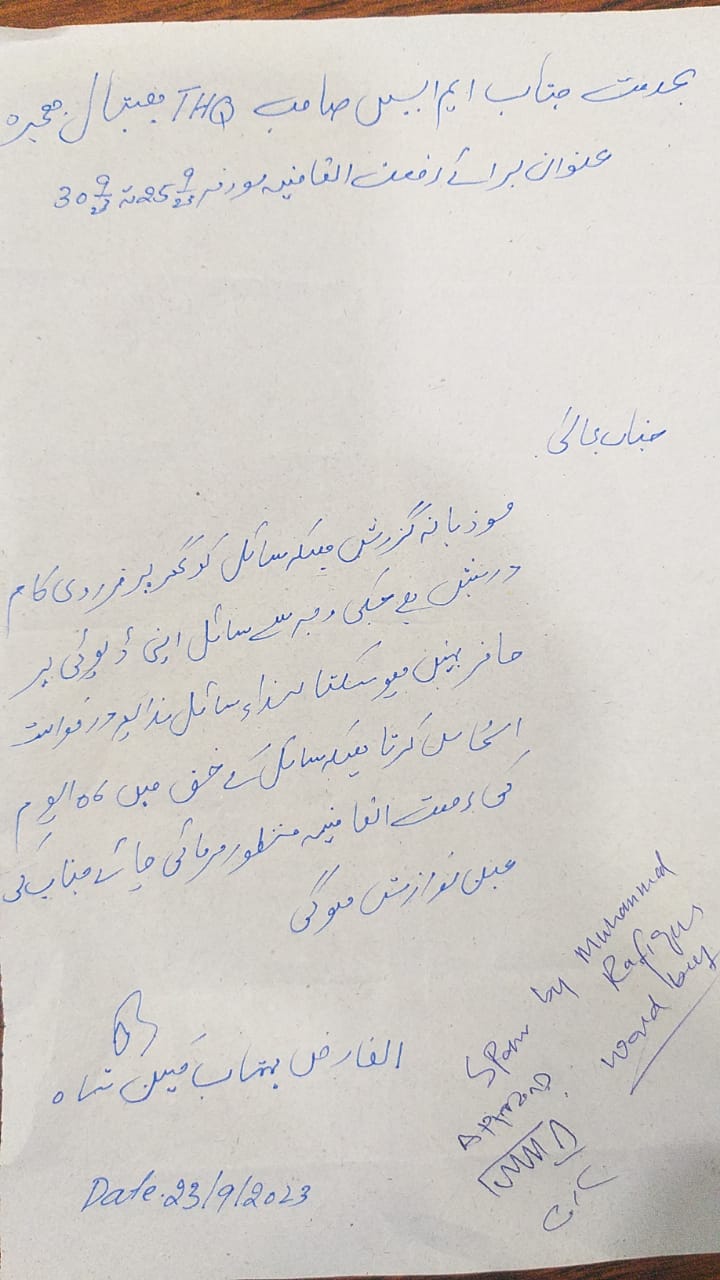 بخدمت جناب ایم ایس صاحب THQ ہسپتال ہجیرہ
عنوان برائے رخصت اتفاقیہ مورخہ 25 9/23 تا 30 9/23
جناب عالیٰ
مودبانہ گزارش ہیکہ سائل کو گھر پر ضروری کام
درپیش ہے جسکی وجہ سے سائل اپنی ڈیوٹی پر
حاضر نہیں ہو سکتا لہذاء سائل بذریعہ درخواست
التماس کرتا ہیکہ سائل کے حق میں 06 ایوم
کی رخصت اتفاقیہ منظور فرمائی جائے جناب کی
عین نوازش ہو گی
العارض مہتاب حسین شاہ
Date. 23/9/2023
by Muhammad
Rafique
Ward boy